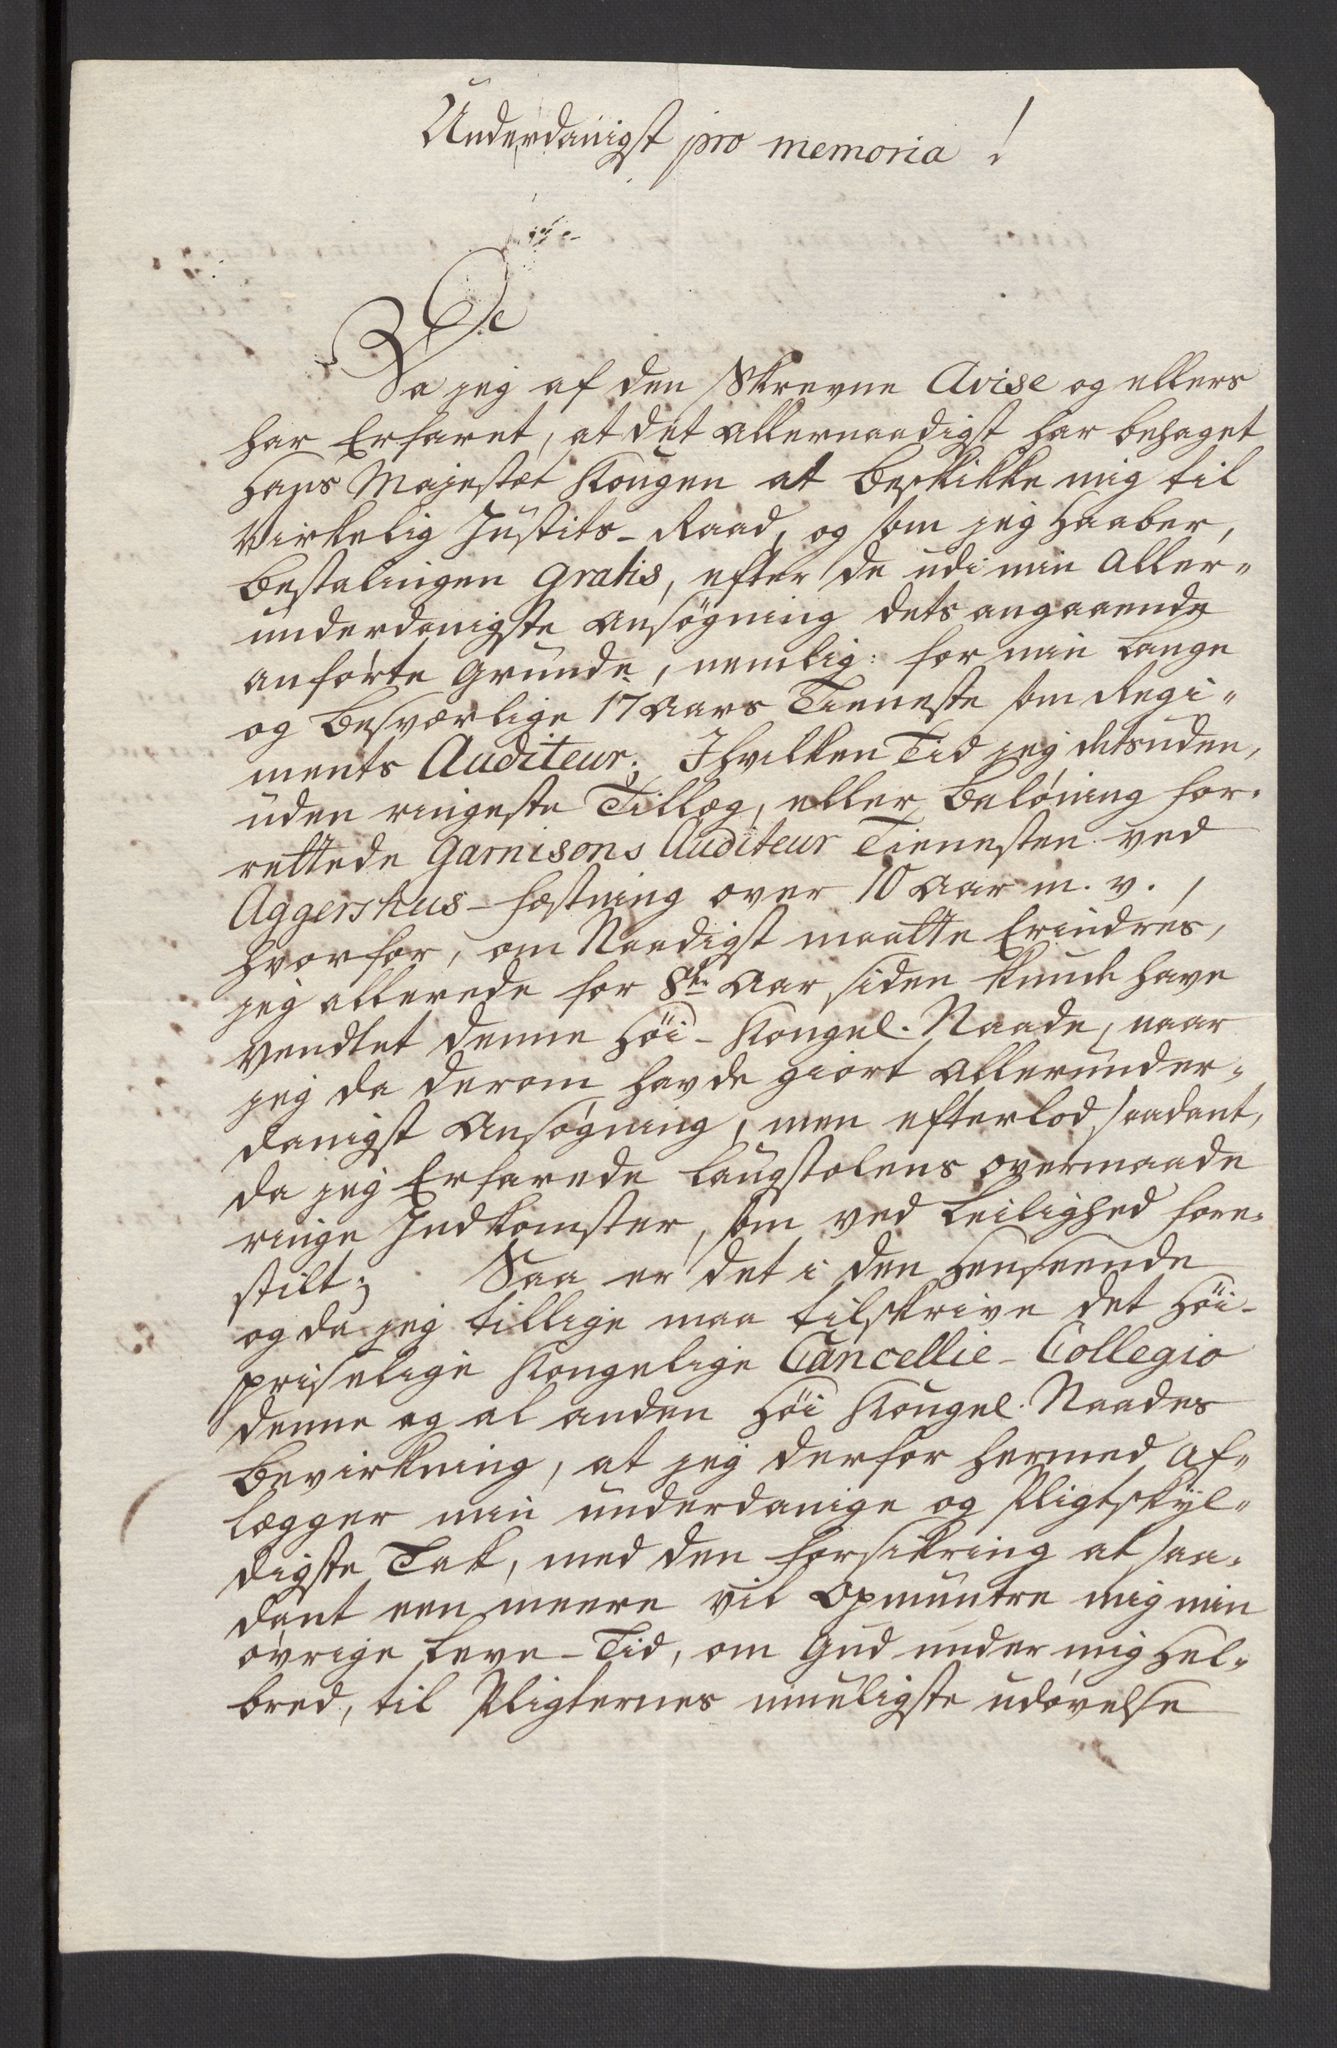 Underdanigst pro memoria!
Da jeg af den Skrevne Avise og ellers
har Erfaret, at det Allernaadigst har behaget
Hans Majestæt Kongen at beskikke mig til
Virkelig Justits-Raad, og som jeg Haaber,
bestalingen gratis, efter de udi min Aller-
underdanigste Ansøgning dets angaaende
anførte Grunde, nemlig: for min Lange
og besværlige 17 Aars Tieneste som Regi-
ments Auditeur; I hvilken Tid jeg detsuden,
uden ringeste Tillæg, eller beløning for-
rettede Garnisons Auditeur Tienesten ved
Aggershus-fæstning over 10 Aar m. v.,
hvorfor, om Naadigst maatte Erindres,
jeg allerede for 8te Aar siden kunde have
Vendtet denne Høi-Kongel. Naade, naar
jeg da derom havde giort Allerunder-
danigst Ansøgning, men efterlod saadant,
da jeg Erfarede Laugstolens overmaade
ringe Indkomster, som ved Leilighed fore-
stilt; Saa er det i den Henseende
og da jeg tillige maa tilskrive det Høi-
priselige Kongelige Cancellie-Collegio
denne og al anden Høi Kongel. Naades
bevirkning, at jeg derfor hermed Af-
lægger min underdanige og Pligtskyl-
digste Tak, med den forsikring at saa-
dant een meere vil Opmuntre mig min
øvrige Leve-Tid, om Gud under mig Hel-
bred, til Pligternes muuligste udøvelse